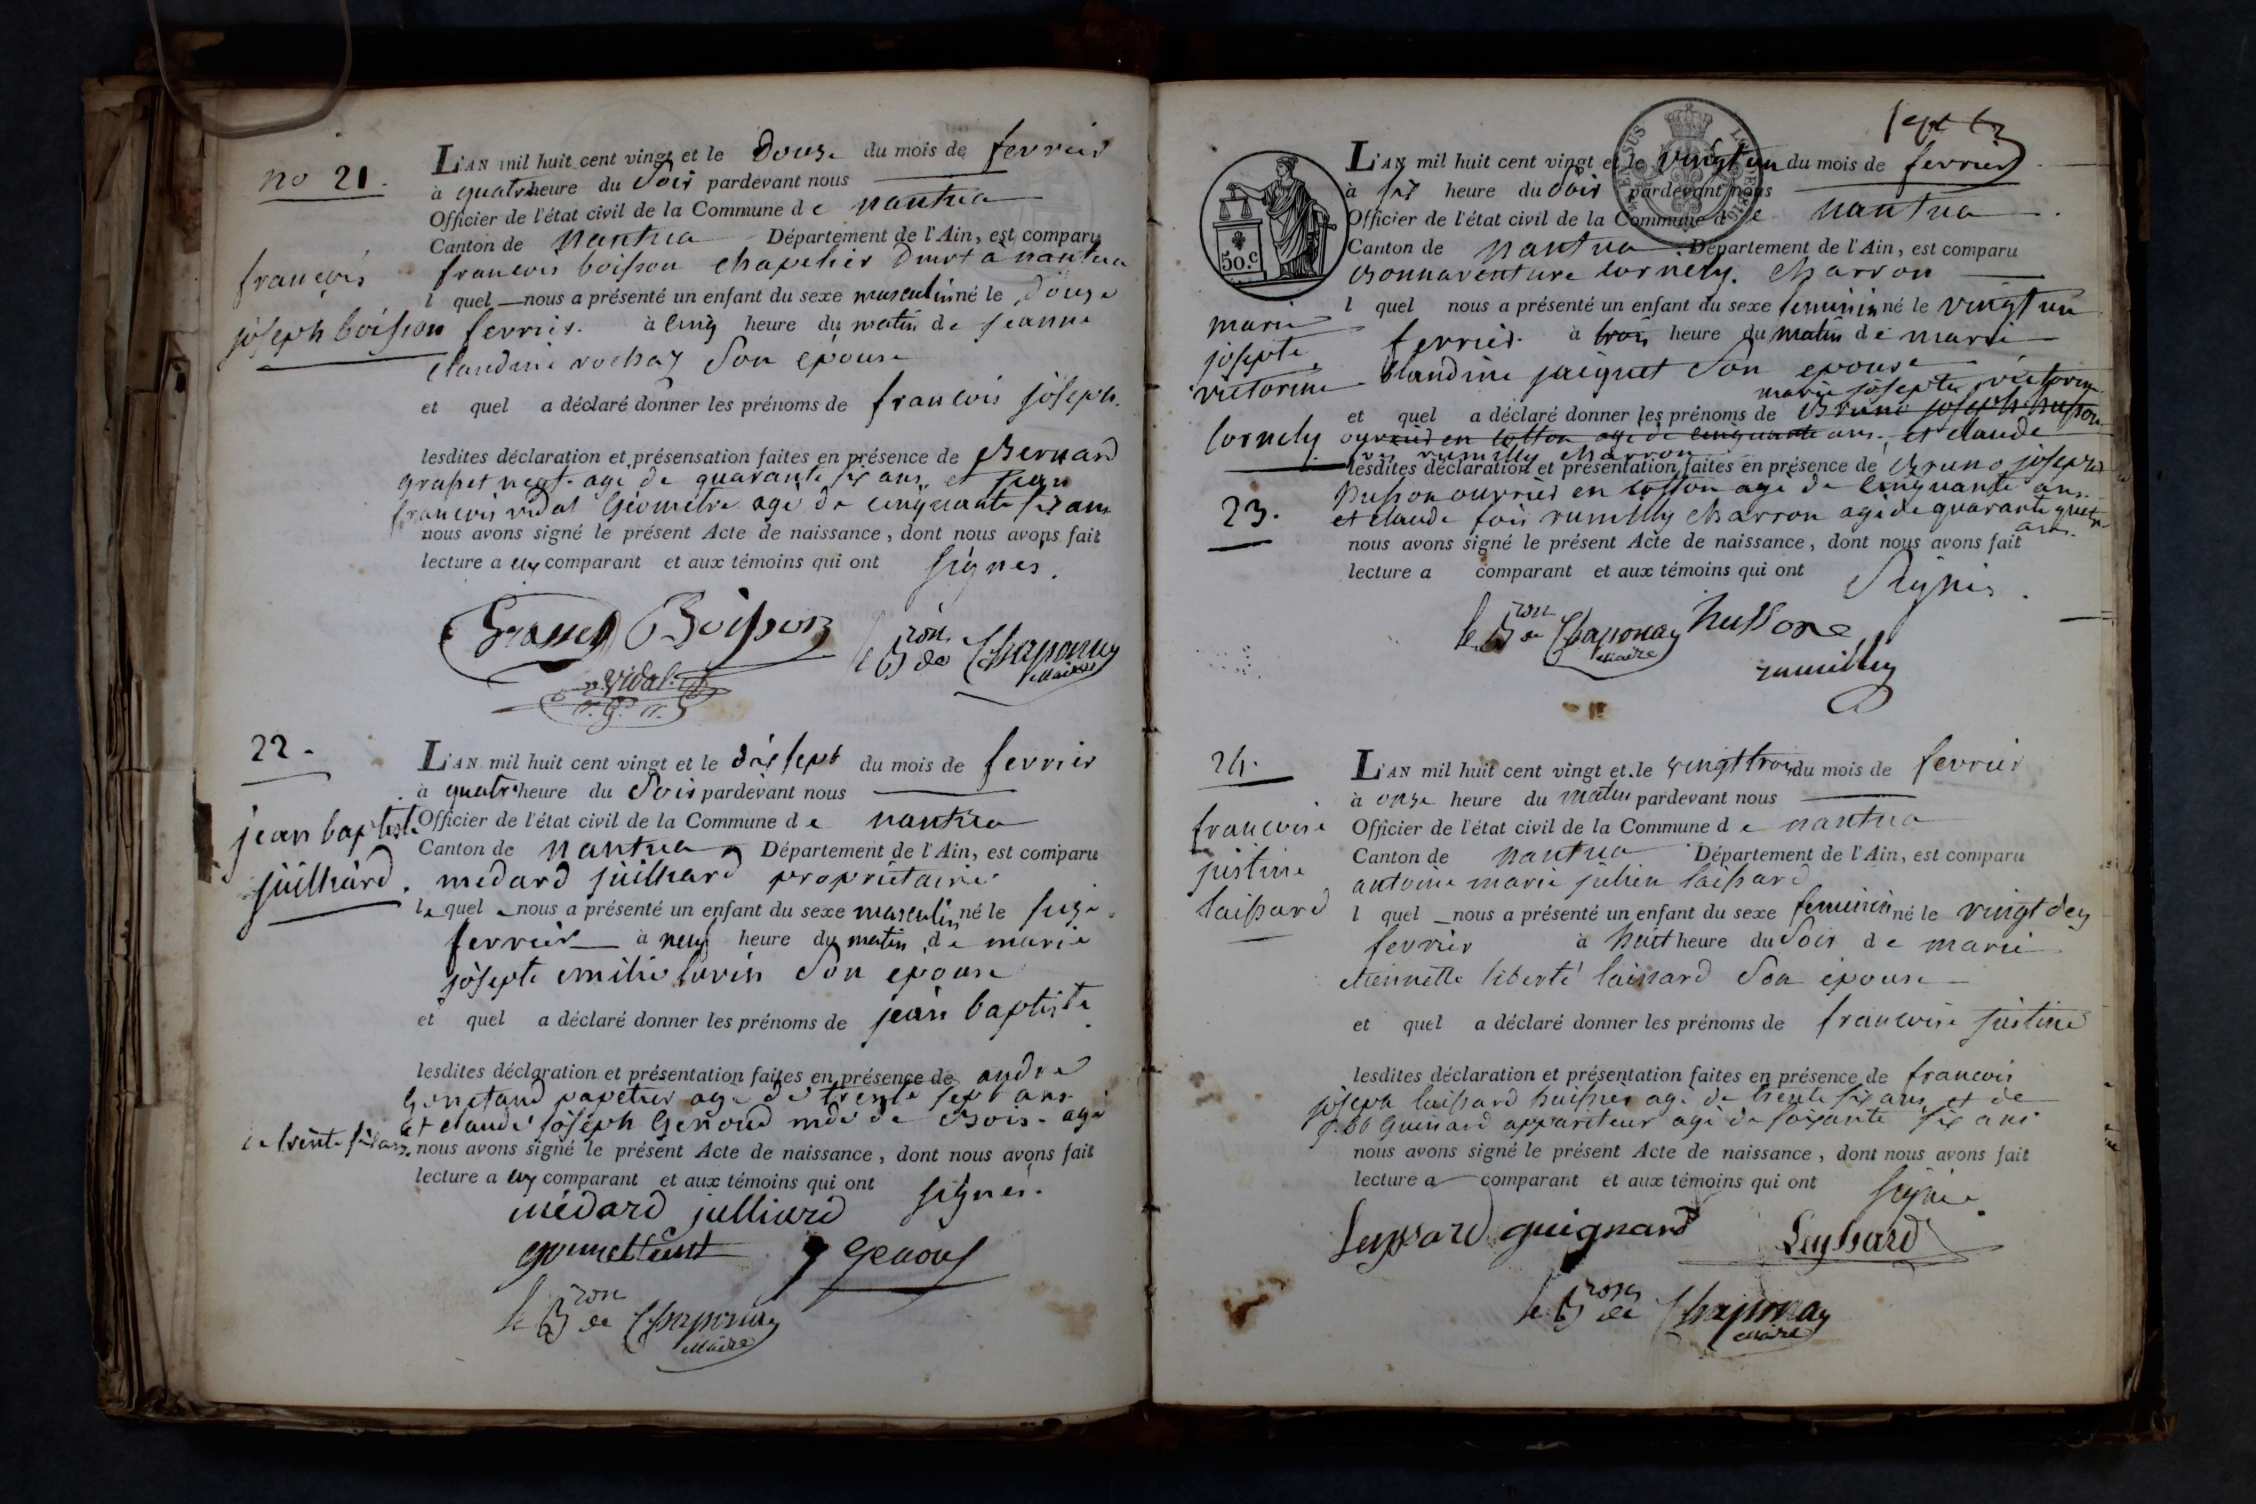 no 21.
françois
joseph boisson
L'AN mil huit cent vingt et le douze du mois de fevrier
à quatre heure du Soir pardevant nous
Officier de l'état civil de la Commune d e nantua
Canton de Nantua Département de l'Ain, est comparu
francois boisson chapelier à nantua
l quel nous a présenté un enfant du sexe masculin né le douze
fevrier. à cinq heure du matin de jeanne
claudine rochaz Son épouse
et quel a déclaré donner les prénoms de francois joseph.
lesdites déclaration et présensation faites en présence de Bernard
grasset negt. agé de quarante six ans et jean
francois vidal Géometre agé de cinquante six ans
nous avons signé le présent Acte de naissance, dont nous avons fait
lecture a comparant et aux témoins qui ont signés.
Grasset Boisson
Vidal
le Bron de Chaponay
Maire
22.
jean baptiste
juilliard.
L'AN mil huit cent vingt et le dix sept du mois de fevrier
à quatre heure du Soir pardevant nous
Officier de l'état civil de la Commune d e nantua
Canton de Nantua Département de l'Ain, est comparu
medard juilliard proprietaire
le quel nous a présenté un enfant du sexe masculin né le seize
fevrier à neuf heure du matin de marie
josepte emilie Son epouse
et quel a déclaré donner les prénoms de jean baptiste
lesdites déclaration et présentation faites en présence de andré
papetier agé de trente sept ans
et claude joseph Genoud mde de Bois. agé
de trente six ans.
nous avons signé le présent Acte de naissance, dont nous avons fait
lecture a comparant et aux témoins qui ont signés.
médard julliard
Genoud
le Bron de Chaponay
Maire
sept
50.c
marie
josepte
victorine
Cornely
23.
L'AN mil huit cent vingt et le vingt un du mois de fevrier
à six heure du Soir pardevant nous
Officier de l'état civil de la Commune d e Nantua
Canton de Nantua Département de l'Ain, est comparu
Bonnaventure Cornely. Charron
l quel nous a présenté un enfant du sexe feminin né le vingt un
fevrier. à trois heure du matin de marie
Claudine jacquet Son epouse
marie josepte victorine
et quel a déclaré donner les prénoms de Bruno joseph husson
ouvrier en cotton agé de cinquante ans. et claude
fois rumilly charron
lesdites déclaration et présentation faites en présence de Bruno joseph
husson ouvrier en cotton agé de cinquante ans
et claude fois rumilly charron agé de quarante quatre
ans.
nous avons signé le présent Acte de naissance, dont nous avons fait
lecture a comparant et aux témoins qui ont Signés.
le Bron de Chaponay hussone
Maire
rumilly
24.
francoise
justine
laissard
L'AN mil huit cent vingt et le vingt trois du mois de fevrier
à onze heure du matin pardevant nous
Officier de l'état civil de la Commune d e nantua
Canton de nantua Département de l'Ain, est comparu
antoine marie julien laissard
l quel nous a présenté un enfant du sexe feminin né le vingt deux
fevrier à huit heure du Soir de marie
etiennette liberté laissard Son épouse
et quel a déclaré donner les prénoms de francoise justine
lesdites déclaration et présentation faites en présence de francois
joseph laissard huissier agé de trente six ans et de
appariteur agé de soixante six ans
nous avons signé le présent Acte de naissance, dont nous avons fait
lecture a comparant et aux témoins qui ont signés.
Leyssard guignard Leyssard
le Bron de Chaponay
Maire